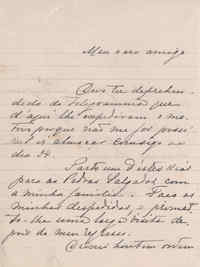 Meu caro amigo
Deves ter deprehen-
dido do telegramma que
d'aqui lhe expediram o mo-
tivo porque não me foi possi-
vel ir almoçar comtigo no
dia
Parto um d'estes dias
para as Pedras Salgadas com
a minha familia. Faço as
minhas despedidas e prometto-
lhe uma larga visita de-
pois do meu regresso.
hontem